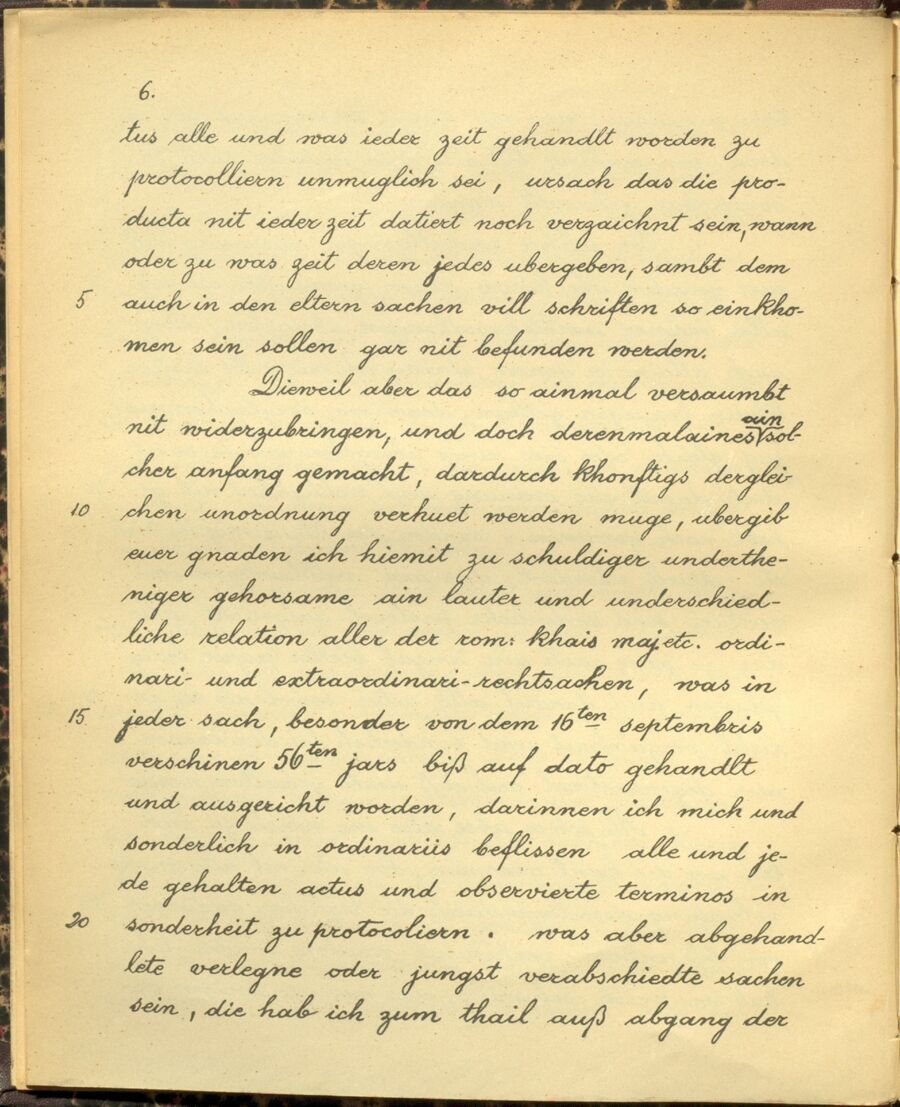 6.
tus alle und was ieder zeit gehandlt worden zu
protocolliern unmuglich sei, ursach das die pro-
ducta nit ieder zeit datiert noch verzaichnt sein, wann
oder zu was zeit deren jedes ubergeben, sambt dem
5 auch in den eltern sachen vill schriften so einkho-
men sein sollen gar nit befunden werden.
Dieweil aber das so ainmal versaumbt
nit widerzubringen, und doch derenmalaines ain sol-
cher anfang gemacht, dardurch khonftigs derglei-
10 chen unordnung verhuet werden muge, ubergib
euer gnaden ich hiemit zu schuldiger underthe-
niger gehorsame ain lauter und underschied-
liche relation aller der rom: khais maj. etc. ordi-
nari- und extraordinari-rechtsachen, was in
15 jeder sach, besonder von dem 16ten septembris
verschinen 56ten jars biß auf dato gehandlt
und ausgericht worden, darinnen ich mich und
sonderlich in ordinariis beflissen alle und je-
de gehalten actus und observierte terminos in
20 sonderheit zu protocoliern. was aber abgehand-
lete verlegne oder jungst verabschiedte sachen
sein, die hab ich zum thail auß abgang der